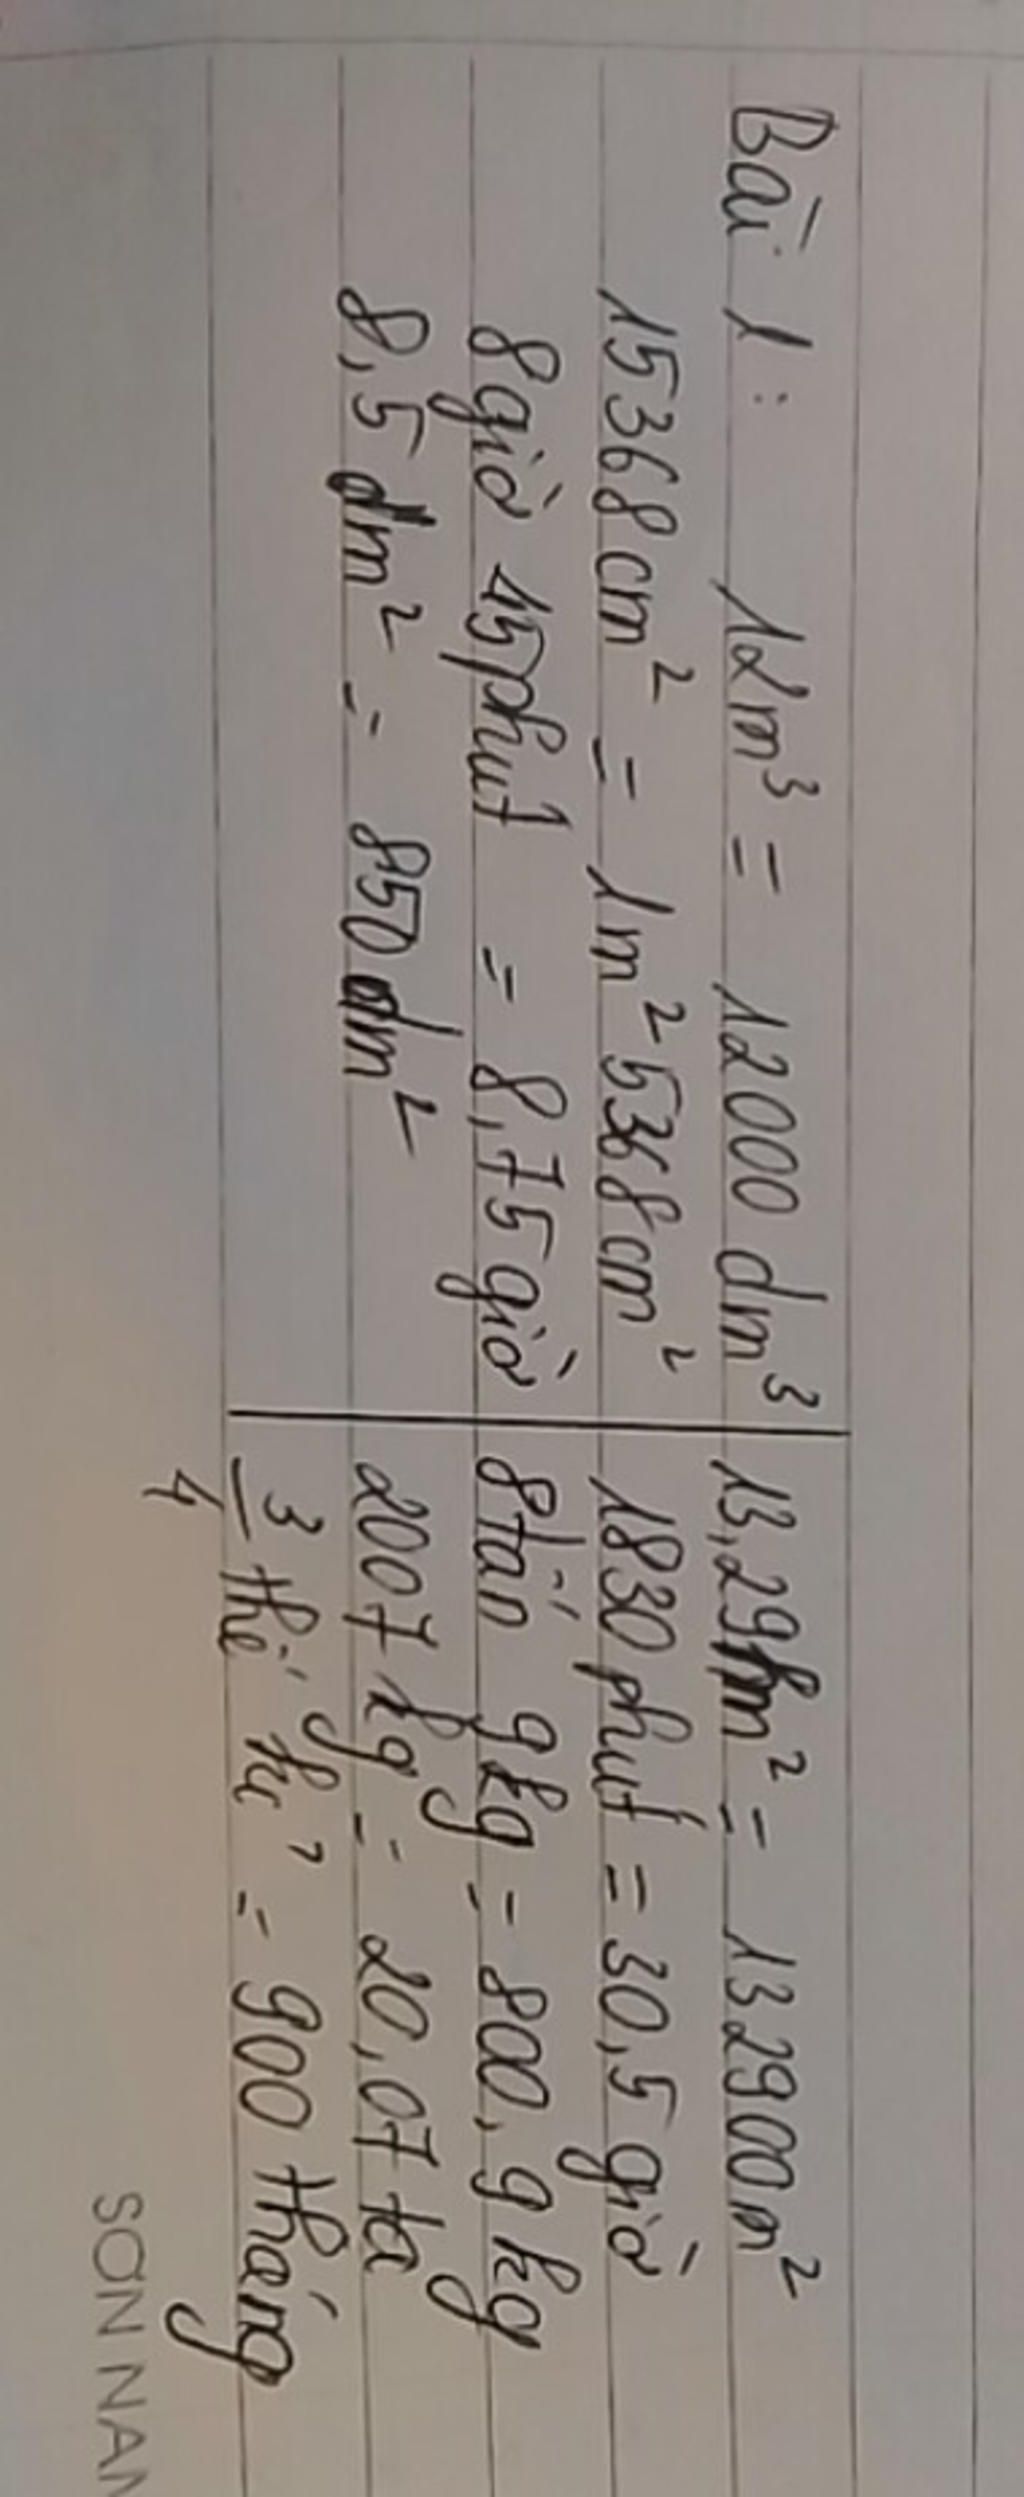 Bài 1: 12m³ = 12000 dm³
15368cm² = 1m² 5368cm²
8giờ 45phút = 8,75giờ
8,5dm² = 850dm²
13,29hm² = 132900m²
1830phút = 30,5 giờ
8tấn 9kg = 800,9kg
2007kg = 20,07 tạ
3/4 thế kỉ = 900 tháng
SƠN NAM